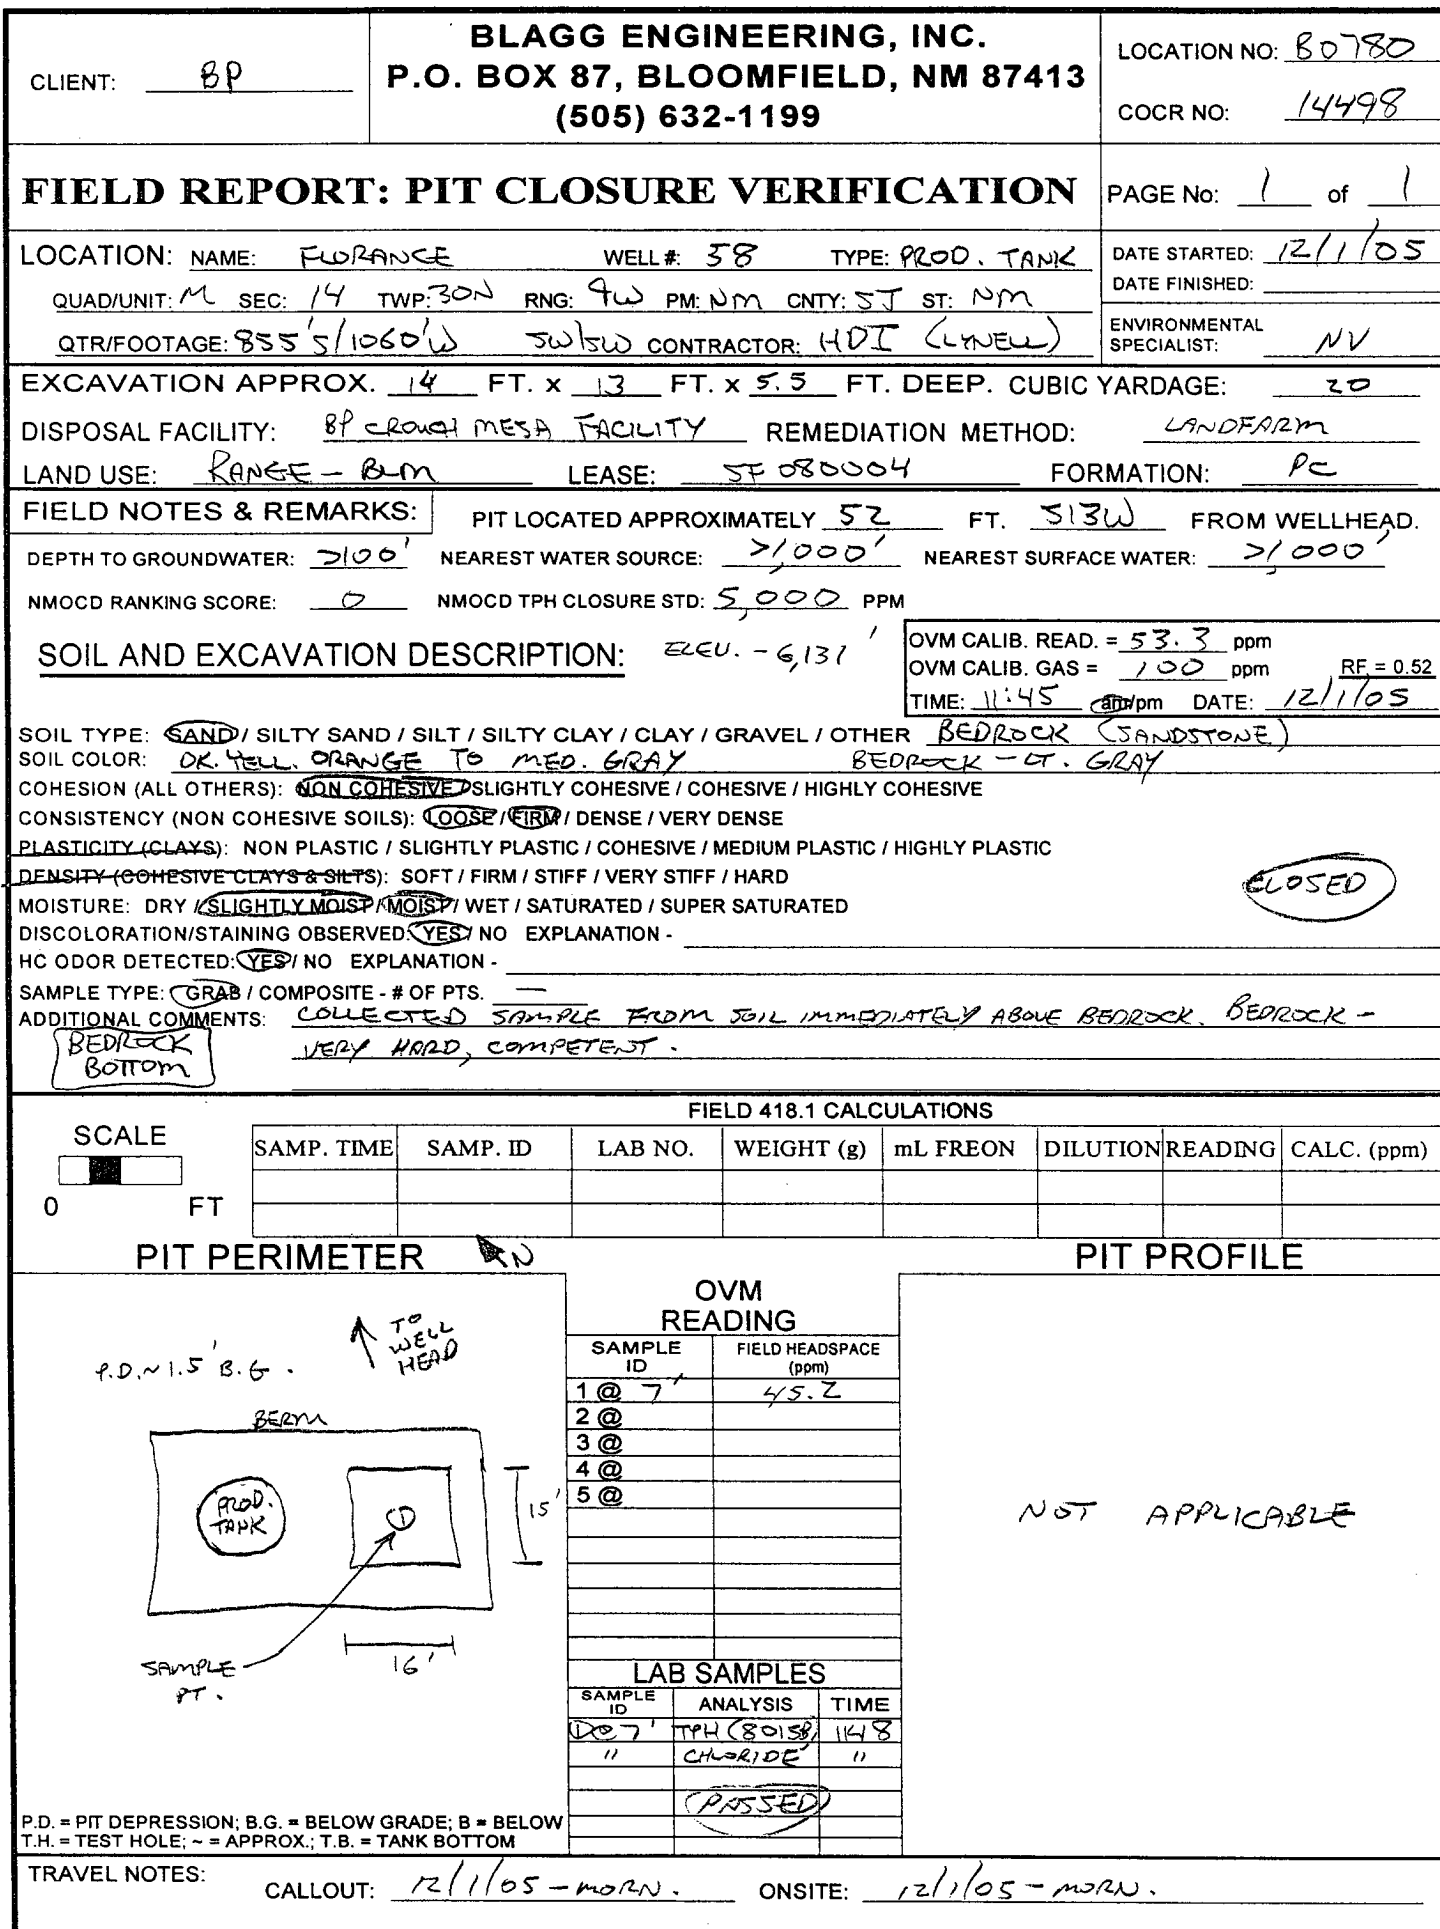 CLIENT: BP
BLAGG ENGINEERING, INC.
P.O. BOX 87, BLOOMFIELD, NM 87413
(505) 632-1199
LOCATION NO: B0780
COCR NO: 14498
FIELD REPORT: PIT CLOSURE VERIFICATION
PAGE No: 1 of 1
LOCATION: NAME: FLORANCE WELL #: 58 TYPE: PROD. TANK
QUAD/UNIT: M SEC: 14 TWP: 30N RNG: 9W PM: NM CNTY: SJ ST: NM
QTR/FOOTAGE: 855'S/1060'W SW/SW CONTRACTOR: HDI (LYNELL)
DATE STARTED: 12/1/05
DATE FINISHED:
ENVIRONMENTAL
SPECIALIST: NV
EXCAVATION APPROX. 14 FT. x 13 FT. x 5.5 FT. DEEP. CUBIC YARDAGE: 20
DISPOSAL FACILITY: BP CROUCH MESA FACILITY REMEDIATION METHOD: LANDFARM
LAND USE: RANGE - BLM LEASE: SF 080004 FORMATION: PC
FIELD NOTES & REMARKS: PIT LOCATED APPROXIMATELY 52 FT. S13W FROM WELLHEAD.
DEPTH TO GROUNDWATER: >100' NEAREST WATER SOURCE: >1,000' NEAREST SURFACE WATER: >1,000'
NMOCD RANKING SCORE: 0 NMOCD TPH CLOSURE STD: 5,000 PPM
SOIL AND EXCAVATION DESCRIPTION: ELEV. - 6,131'
OVM CALIB. READ. = 53.3 ppm
OVM CALIB. GAS = 100 ppm RF = 0.52
TIME: 11:45 am/pm DATE: 12/1/05
SOIL TYPE: SAND / SILTY SAND / SILT / SILTY CLAY / CLAY / GRAVEL / OTHER BEDROCK (SANDSTONE)
SOIL COLOR: DK. YELL. ORANGE TO MED. GRAY BEDROCK - LT. GRAY
COHESION (ALL OTHERS): NON COHESIVE / SLIGHTLY COHESIVE / COHESIVE / HIGHLY COHESIVE
CONSISTENCY (NON COHESIVE SOILS): LOOSE / FIRM / DENSE / VERY DENSE
PLASTICITY (CLAYS): NON PLASTIC / SLIGHTLY PLASTIC / COHESIVE / MEDIUM PLASTIC / HIGHLY PLASTIC
DENSITY (COHESIVE CLAYS & SILTS): SOFT / FIRM / STIFF / VERY STIFF / HARD
MOISTURE: DRY / SLIGHTLY MOIST / MOIST / WET / SATURATED / SUPER SATURATED
CLOSED
DISCOLORATION/STAINING OBSERVED: YES / NO EXPLANATION -
HC ODOR DETECTED: YES / NO EXPLANATION -
SAMPLE TYPE: GRAB / COMPOSITE - # OF PTS. —
ADDITIONAL COMMENTS: COLLECTED SAMPLE FROM SOIL IMMEDIATELY ABOVE BEDROCK. BEDROCK -
VERY HARD, COMPETENT.
BEDROCK
BOTTOM
FIELD 418.1 CALCULATIONS
SCALE
0 FT
SAMP. TIME SAMP. ID LAB NO. WEIGHT (g) mL FREON DILUTION READING CALC. (ppm)
PIT PERIMETER N
PIT PROFILE
TO
WELL
HEAD
P.D. ~ 1.5' B.G.
BERM
PROD.
TANK
1
15'
16'
SAMPLE
PT.
OVM
READING
SAMPLE
ID
FIELD HEADSPACE
(ppm)
1 @ 7' 45.2
2 @
3 @
4 @
5 @
NOT APPLICABLE
LAB SAMPLES
SAMPLE
ID
ANALYSIS TIME
1@7' TPH (8015B) 1148
" CHLORIDE "
PASSED
P.D. = PIT DEPRESSION; B.G. = BELOW GRADE; B = BELOW
T.H. = TEST HOLE; ~ = APPROX.; T.B. = TANK BOTTOM
TRAVEL NOTES: CALLOUT: 12/1/05 - MORN. ONSITE: 12/1/05 - MORN.